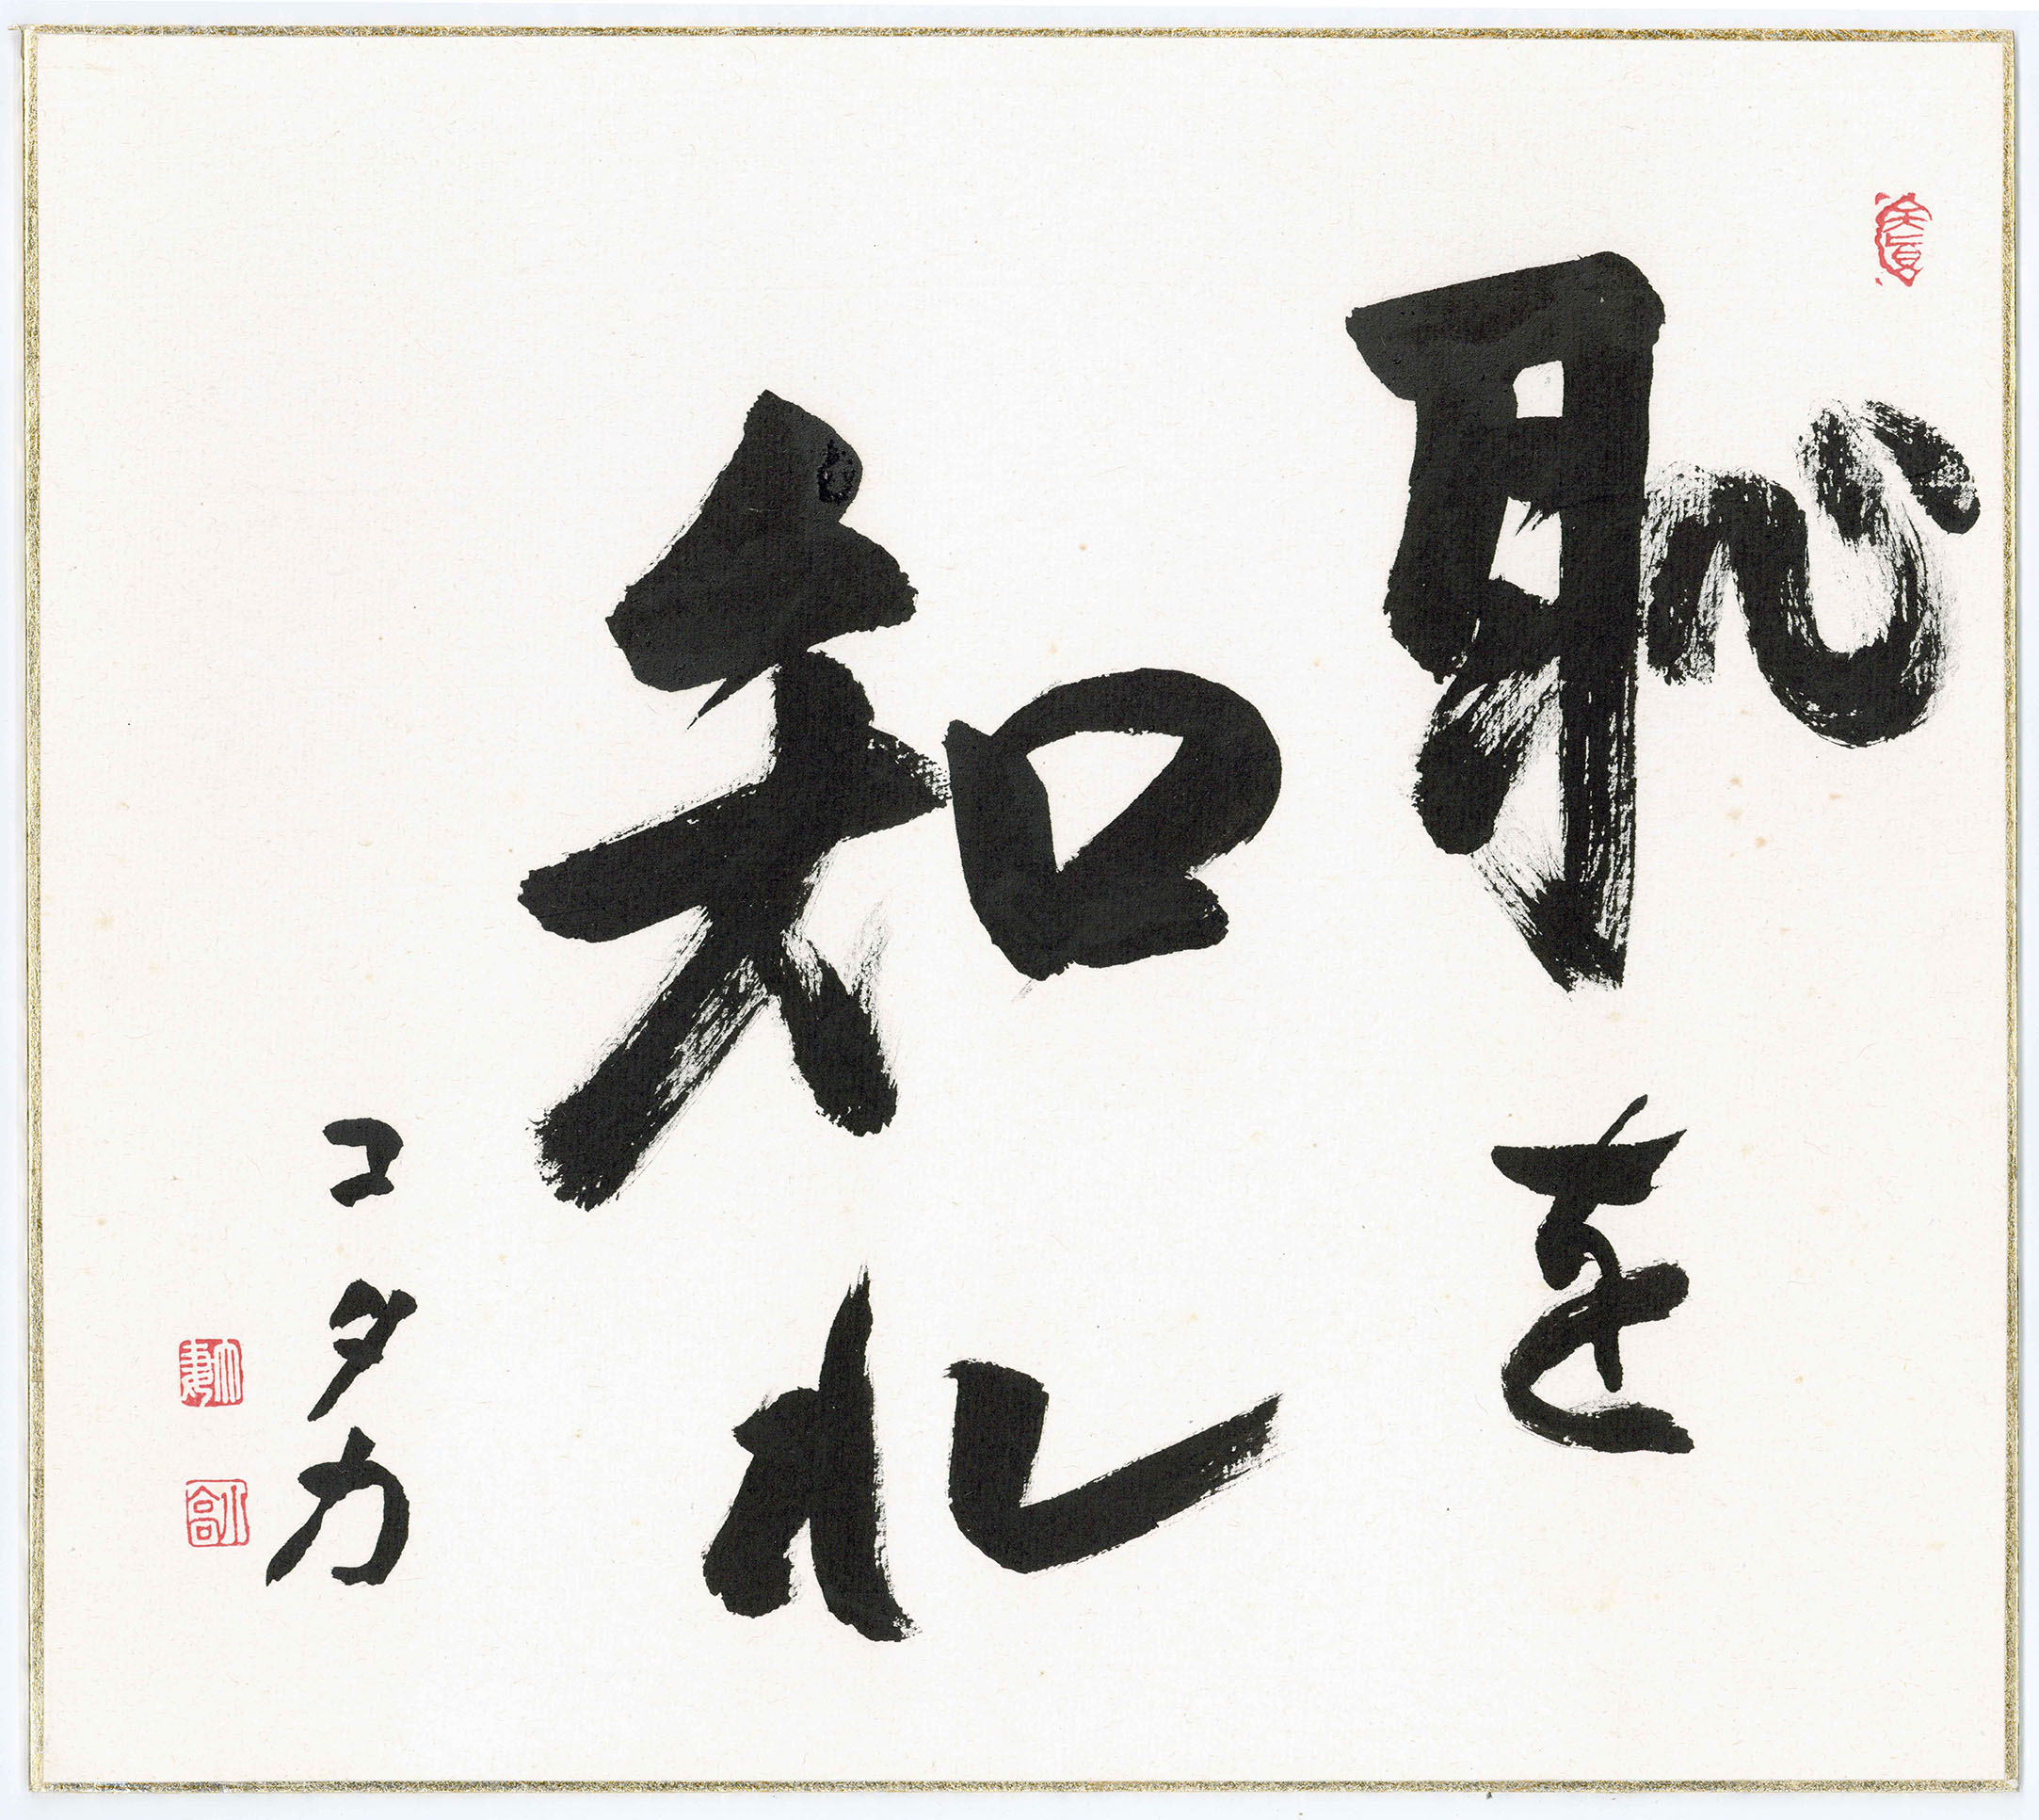 恥を
知れ
コタカ